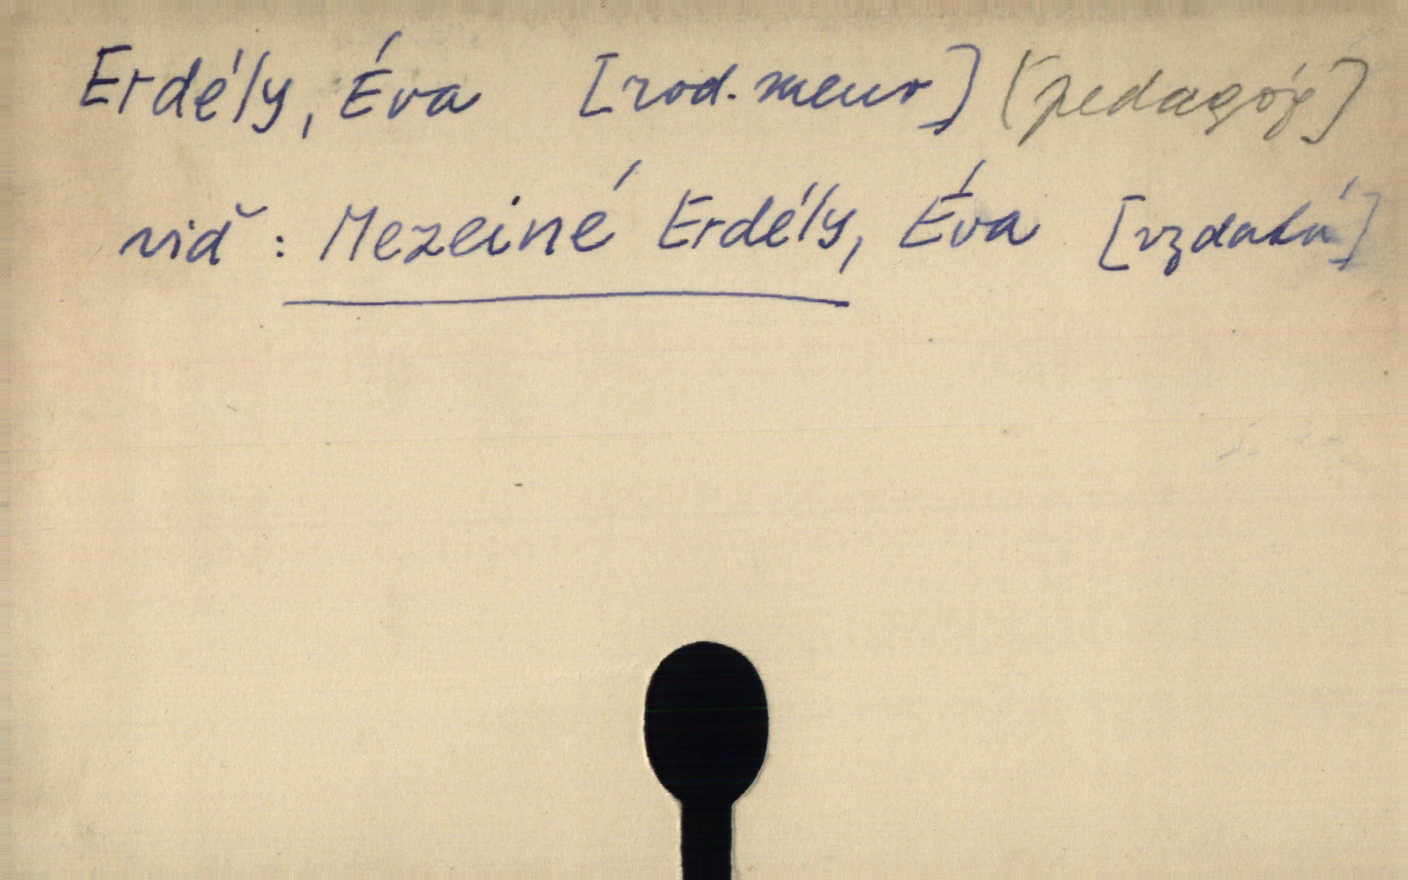 Erdély, Éva [rod. meno] [pedagóg]
viď: Mezeiné Erdély, Éva [vydatá]